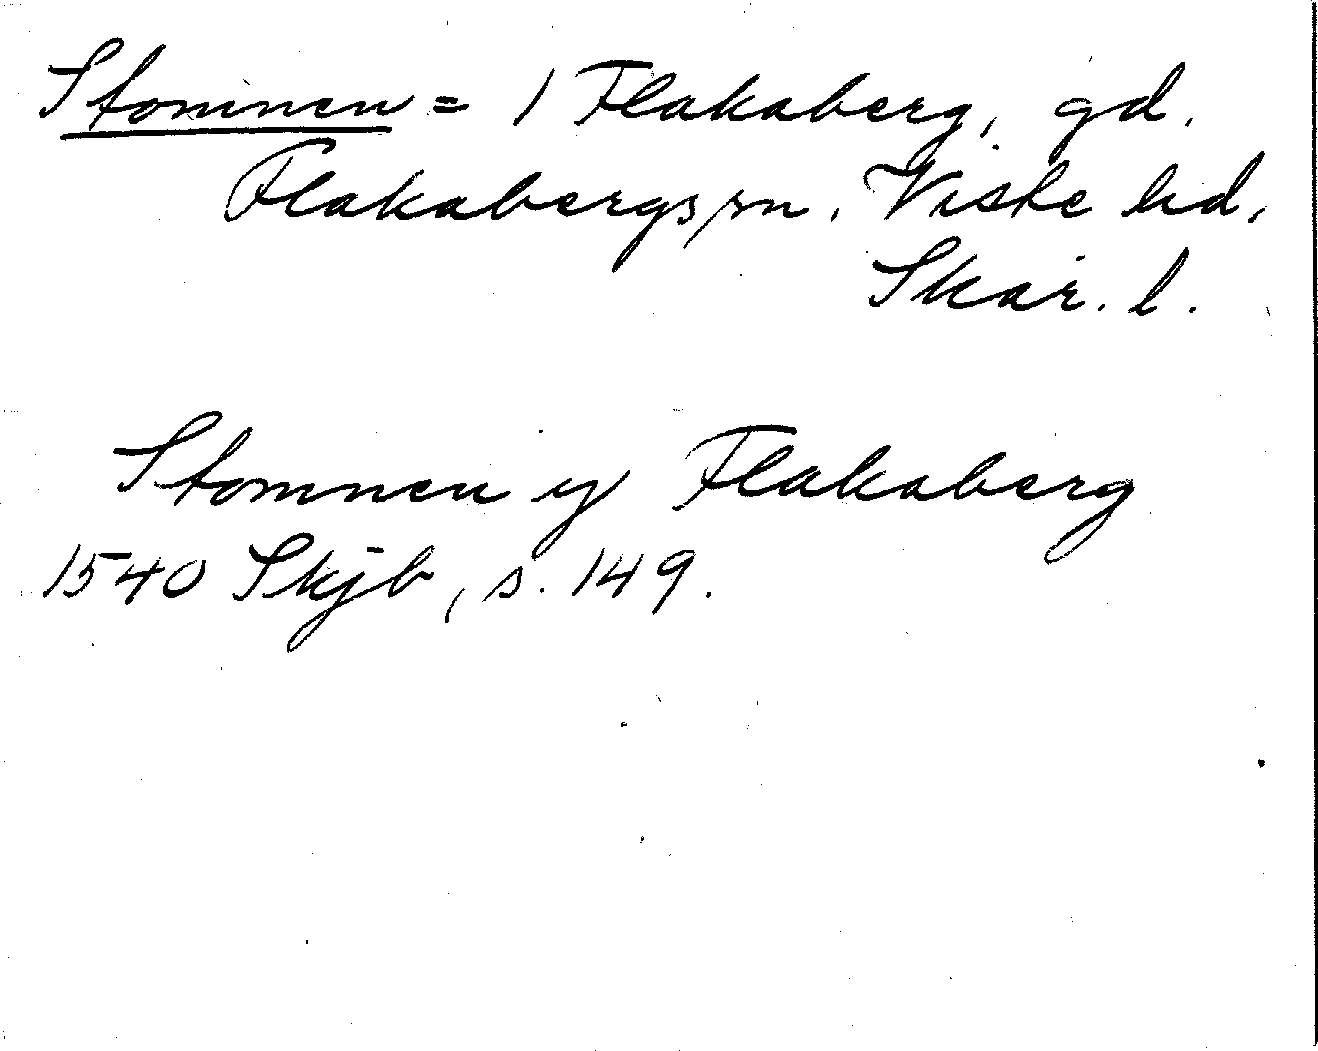 Stommen = 1 Flakaberg, gd.
Flakabergs sn. Viste hd,
Skar. l.
Stommen y Flakaberg
1540 Skjb, s. 149.